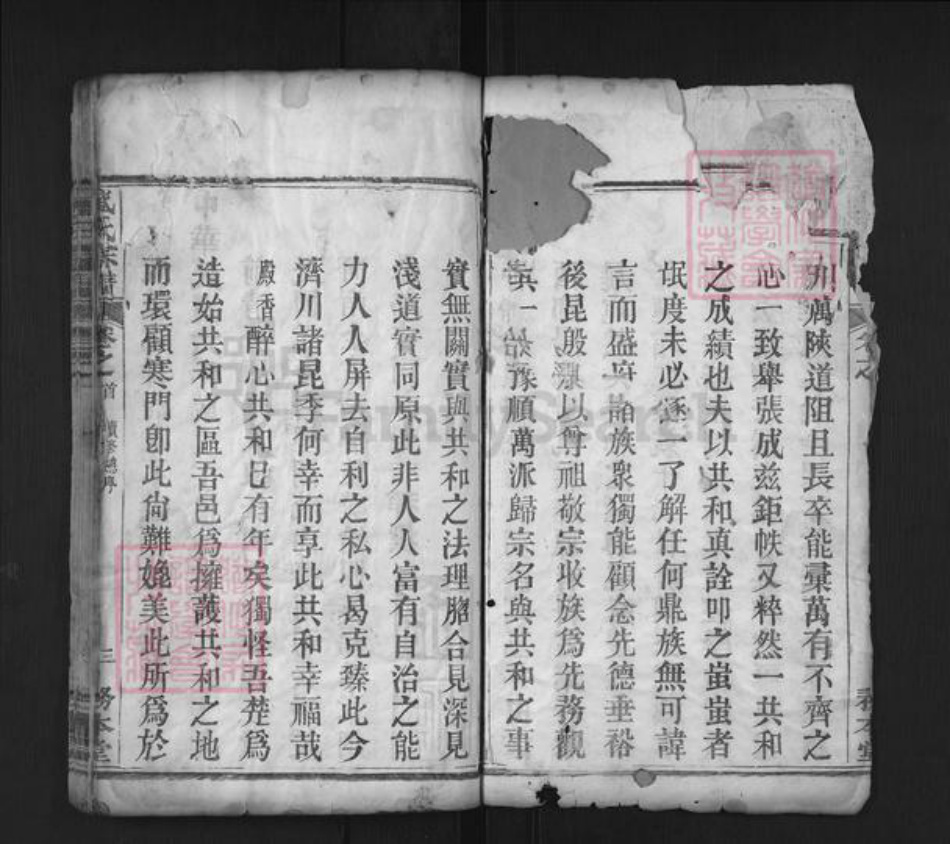 川萬陝道阻且長卒能彙萬有不齊之
心一致舉張成茲鉅帙又粹然一共和
之成績也夫以共和真詮叩之蚩蚩者
氓度未必逐一了解任何鼎族無可諱
言而盛府諸族衆獨能顧念先德垂裕
後昆般以尊祖敬宗收族爲先務觀
其一豫順萬派歸宗名與共和之事
實無關實與共和之法理脗合見深見
淺道實同原此非人人富有自治之能
力人人屏去自利之私心曷克臻此今
濟川諸昆季何幸而享此共和幸福哉
廏香醉心共和已有年矣獨怪吾楚爲
造始共和之區吾邑爲擁護共和之地
而環顧寒門卽此尙難媲美此所爲於
氏宗譜 卷之首 續修總序 三 務本堂
FamilySearch